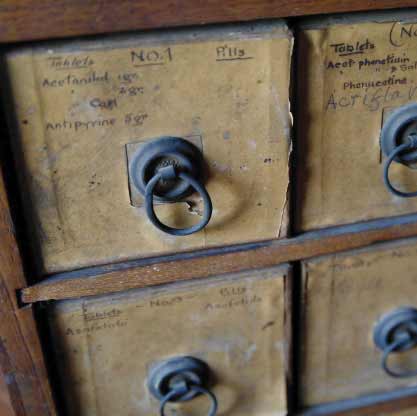 Tablets No.1 Pills
Acetanilid 1gr.
2gr.
Antipyrine 5gr.
Tablets (No
Acet phenetidin
" & Sal
Phenacetine
Acriflav
Tablets No. Pills
Asafetida Asafetida